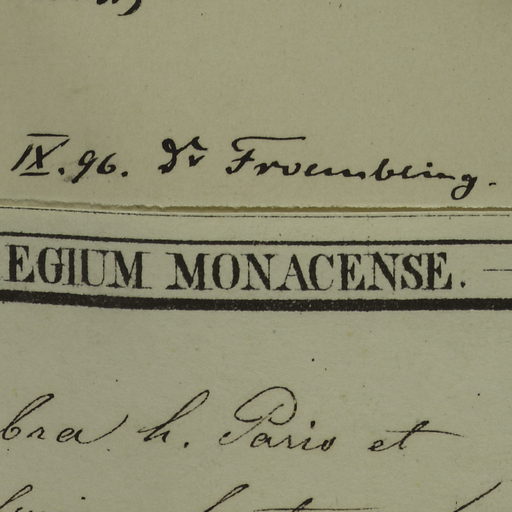 IX. 96. Dr Froembling.
EGIUM MONACENSE.
bra h. Pario et